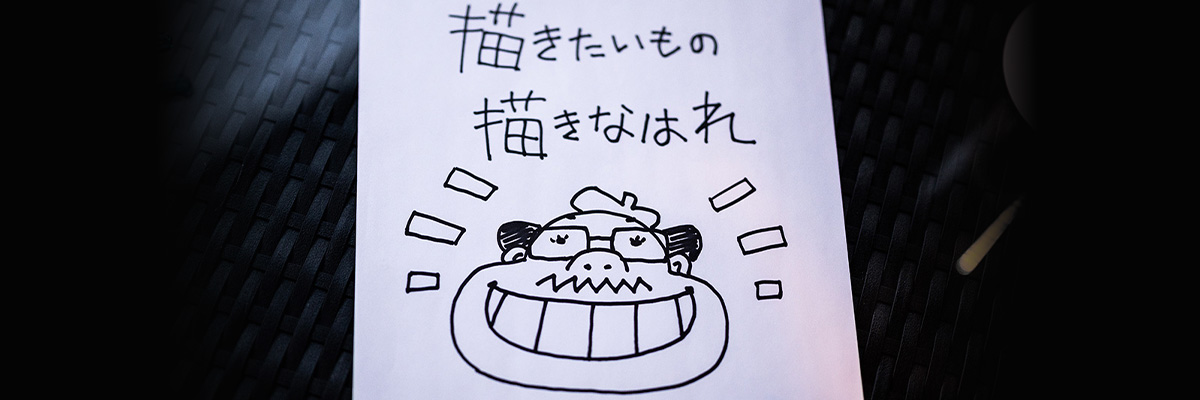 描きたいもの
描きなはれ